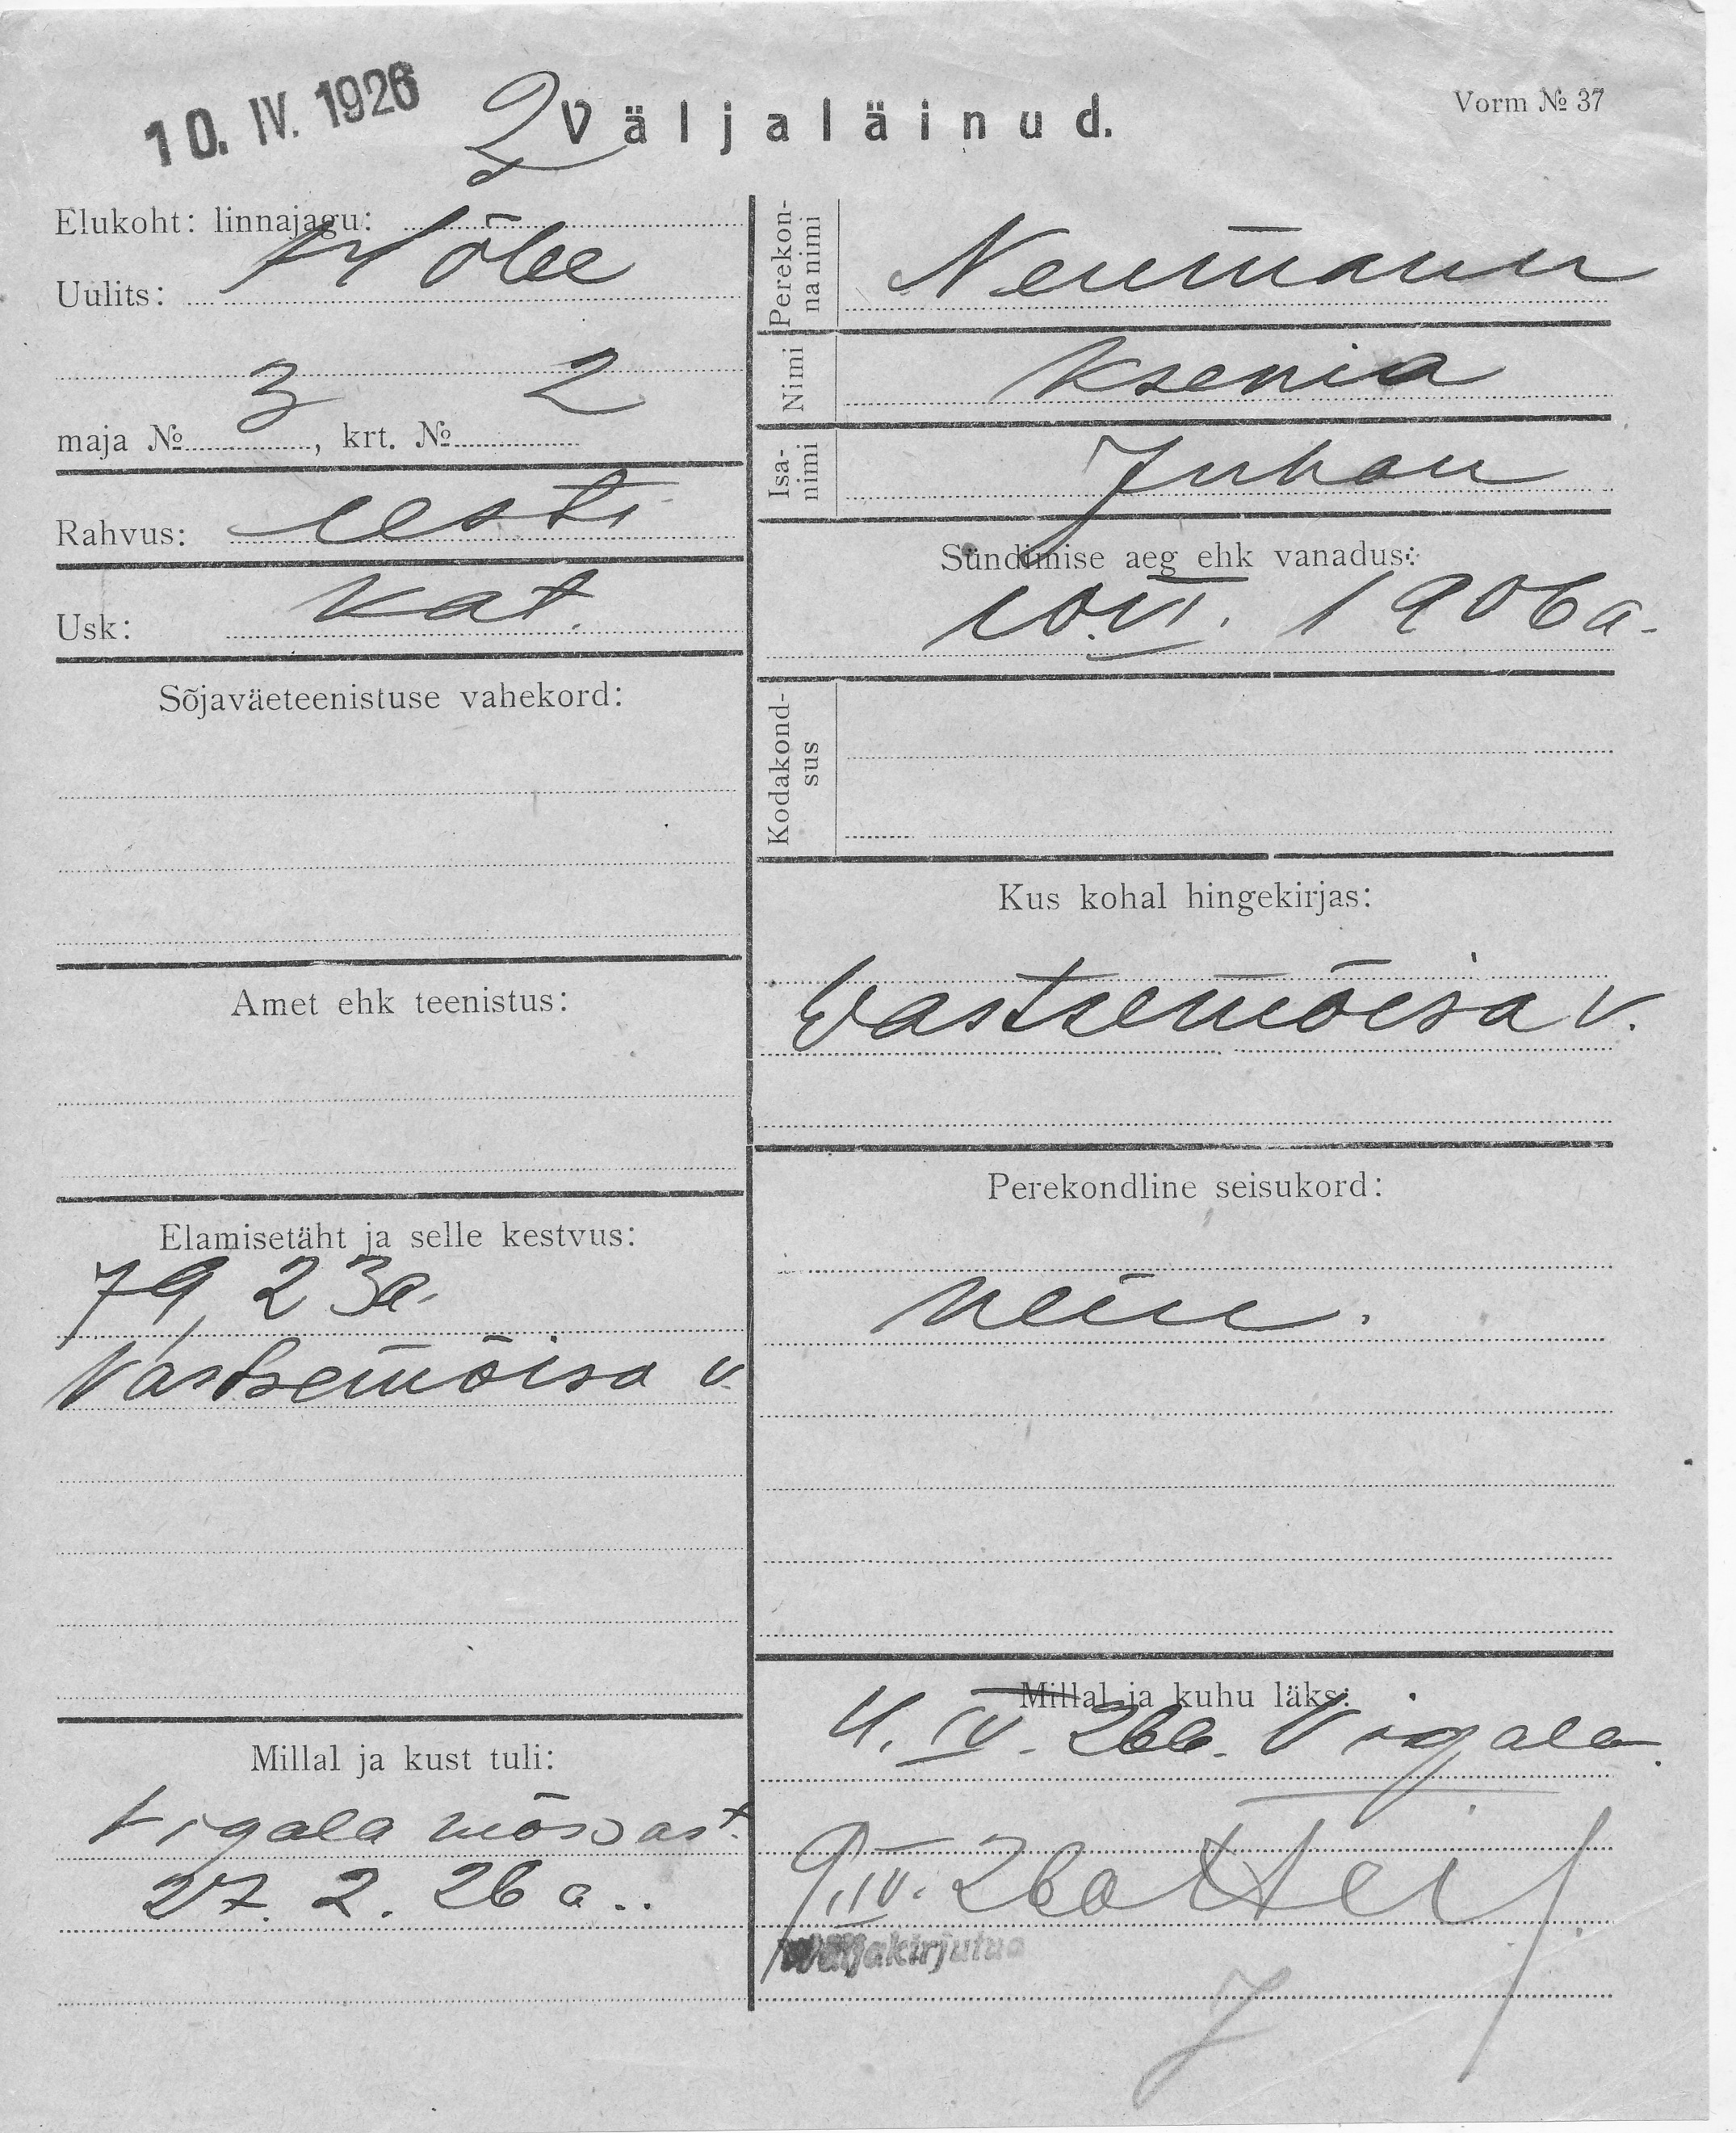 10. IV. 1926
2
Väljaläinud.
Vorm № 37
Elukoht: linnajagu:
Uulits: Hõbe
maja № 3, krt. № 2
Rahvus: eesti
Usk: kat.
Sõjaväeteenistuse vahekord:
Amet ehk teenistus:
Elamisetäht ja selle kestvus:
79, 23a.
Vastsemõisa v.
Millal ja kust tuli:
Vigala mõisast.
27. 2. 26 a..
Perekonnanimi Neumann
Nimi Ksenia
Isanimi Juhan
Sündimise aeg ehk vanadus:
10.VI. 1906a.
Kodakondsus
Kus kohal hingekirjas:
Vastsemõisa v.
Perekondline seisukord:
neiu.
Millal ja kuhu läks:
4. IV. 26a. Vigala.
9.IV. 26a
Väljakirjutud